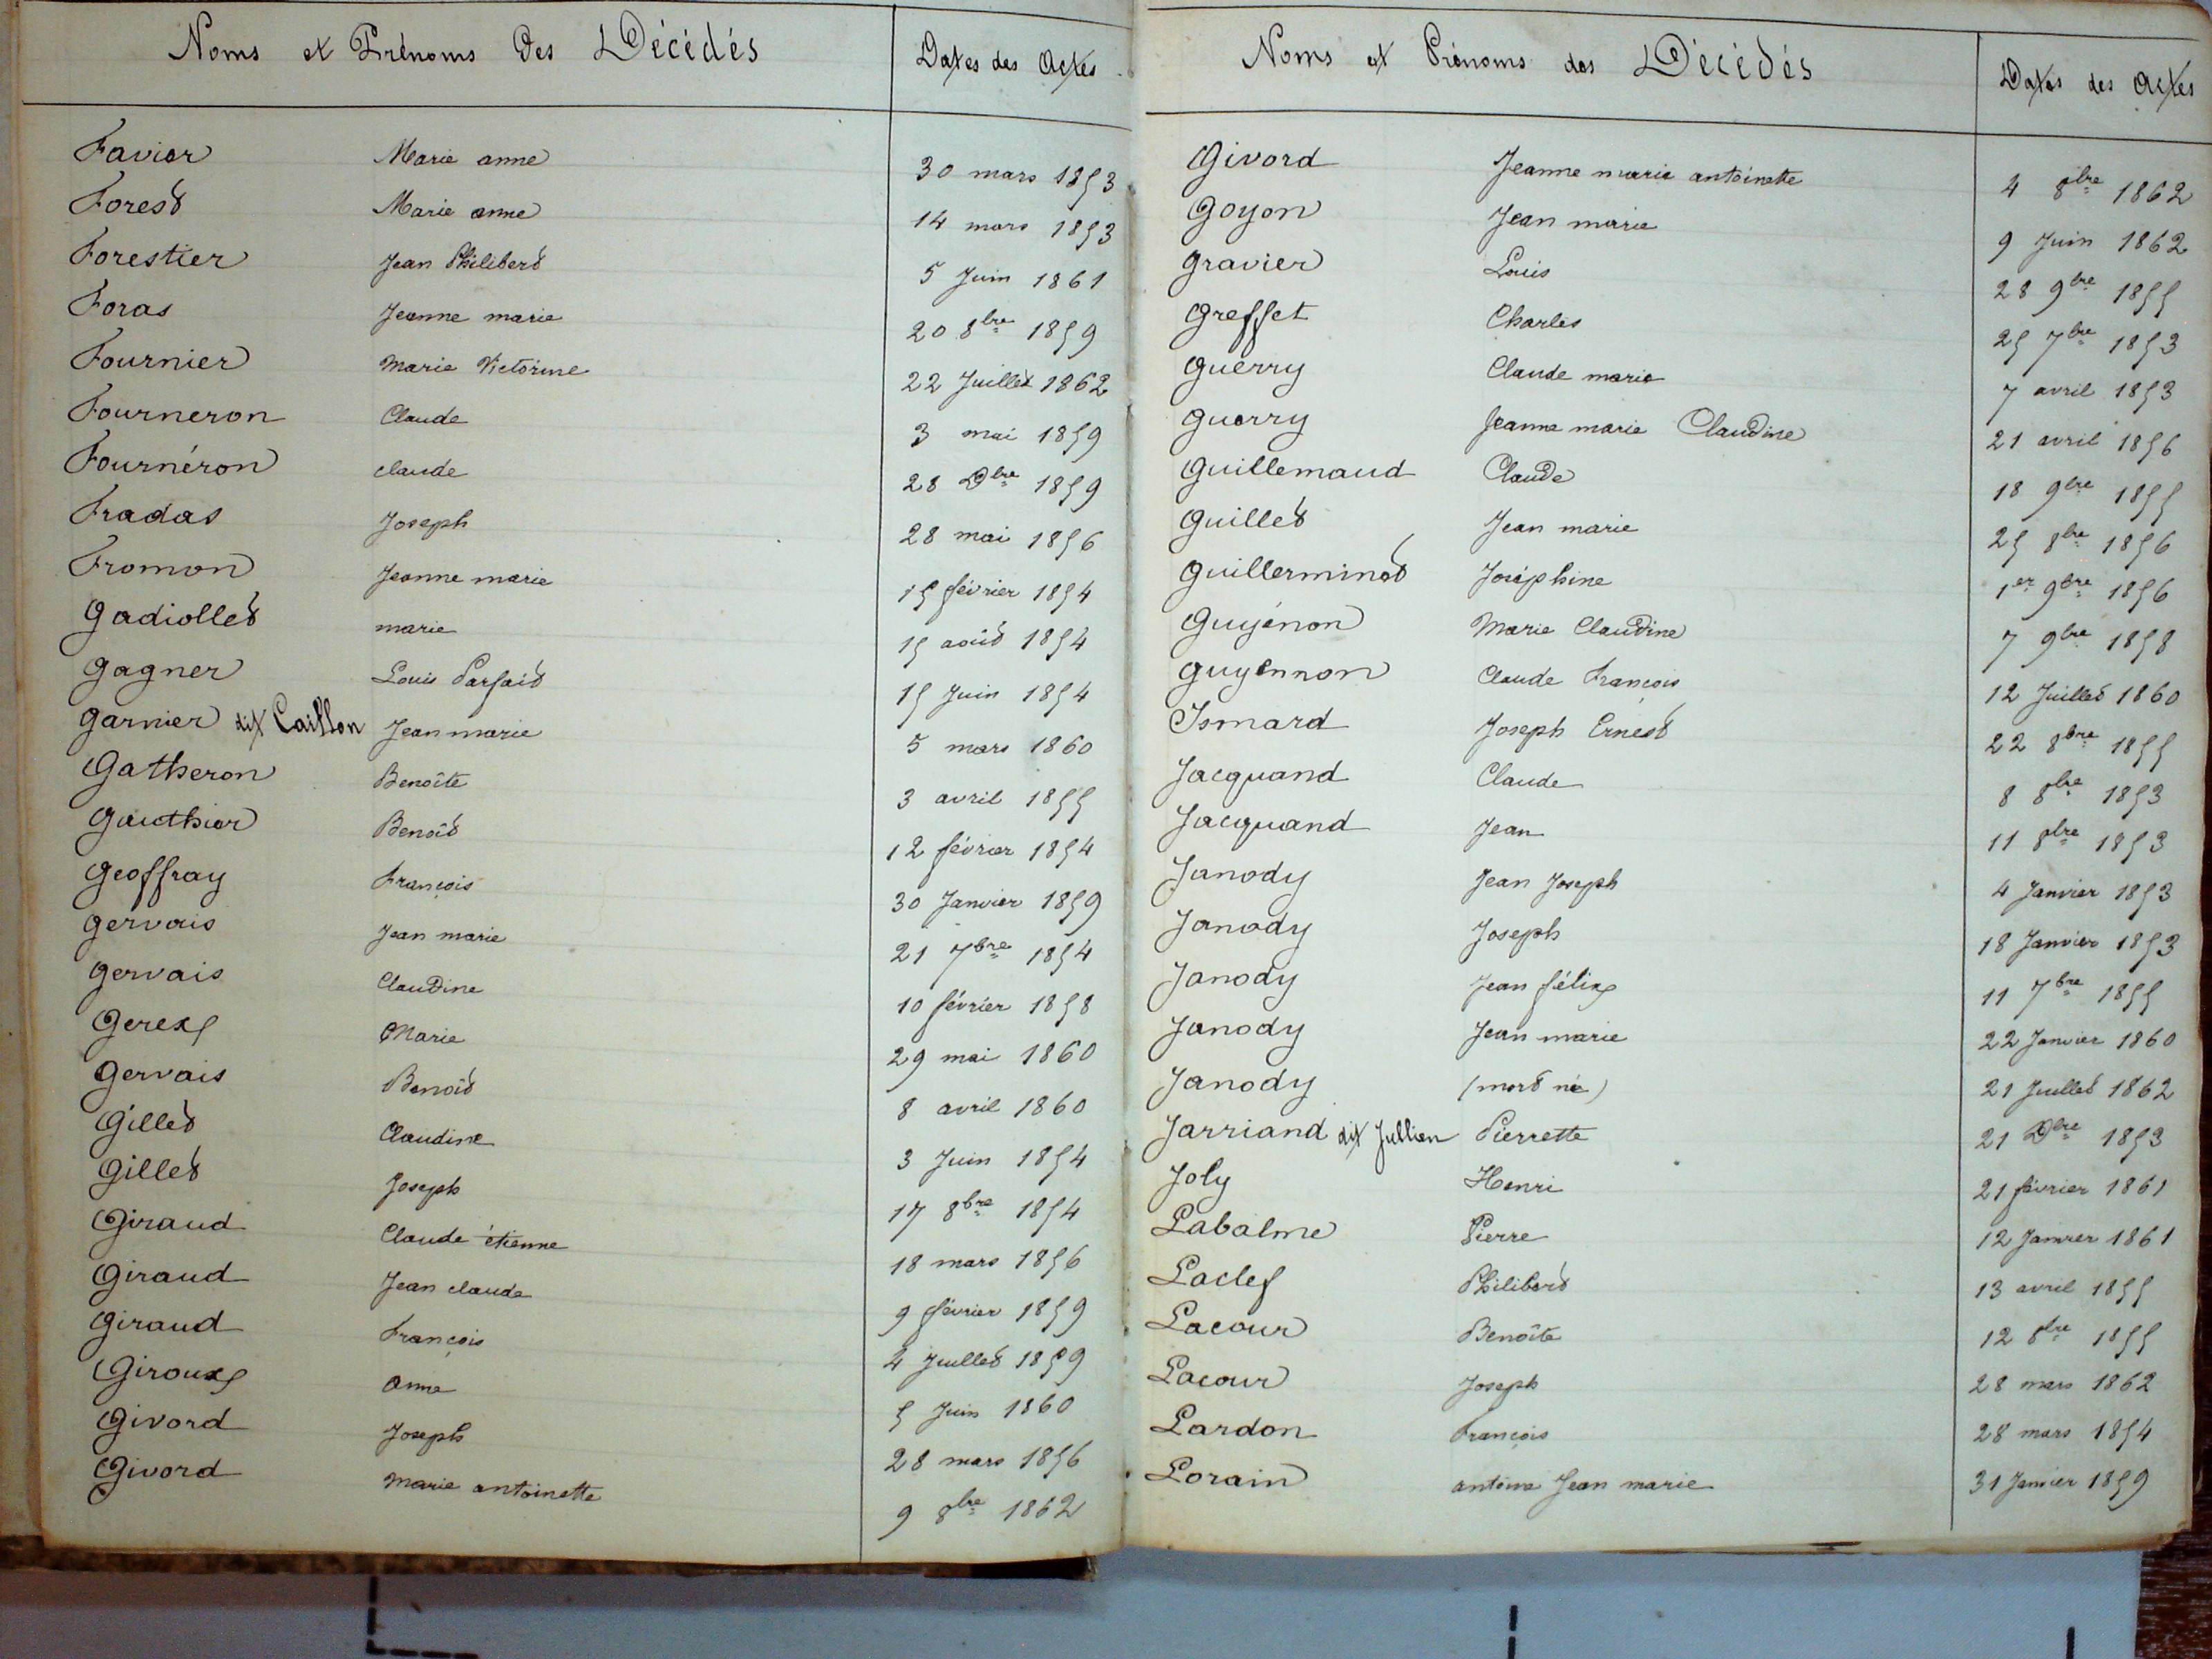 Noms et Prénoms des Décédés Dates des Actes
Favier Marie anne 30 mars 1853
Forest Marie anne 14 mars 1853
Forestier Jean Philibert 5 Juin 1861
Foras Jeanne marie 20 8bre 1859
Fournier Marie Victorine 22 Juillet 1862
Fourneron Claude 3 mai 1859
Fournéron claude 28 Dbre 1859
Fradas Joseph 28 mai 1856
Fromon Jeanne marie 15 février 1854
Gadiollet marie 15 août 1854
Gagner Louis Parfait 15 Juin 1854
Garnier dit Caillon Jean marie 5 mars 1860
Gatheron Benoîte 3 avril 1855
Gauthier Benoît 12 février 1854
Geoffray François 30 Janvier 1859
Gervais Jean marie 21 7bre 1854
Gervais Claudine 10 février 1858
Gerex Marie 29 mai 1860
Gervais Benoît 8 avril 1860
Gillet Claudine 3 Juin 1854
Gillet Joseph 17 8bre 1854
Giraud Claude étienne 18 mars 1856
Giraud Jean claude 9 février 1859
Giraud François 4 Juillet 1859
Giroux anne 5 Juin 1860
Givord Joseph 28 mars 1856
Givord Marie antoinette 9 8bre 1862
Noms et Prénoms des Décédés Dates des Actes
Givord Jeanne marie antoinette 4 8bre 1862
Goyon Jean marie 9 Juin 1862
Gravier Louis 28 9bre 1855
Greffet Charles 25 7bre 1853
Guerry Claude marie 7 avril 1853
Guerry Jeanne marie Claudine 21 avril 1856
Guillemaud Claude 18 9bre 1855
Guillet Jean marie 25 8bre 1856
Guillerminet Joséphine 1er 9bre 1856
Guyénon Marie Claudine 7 9bre 1858
Guyennon Claude François 12 Juillet 1860
Ismard Joseph Ernest 22 8bre 1855
Jacquand Claude 8 8bre 1853
Jacquand Jean 11 8bre 1853
Janody Jean Joseph 4 Janvier 1853
Janody Joseph 18 Janvier 1853
Janody Jean félix 11 7bre 1855
Janody Jean marie 22 Janvier 1860
Janody (mort né) 21 Juillet 1862
Jarriand dit Jullien Pierrette 21 Dbre 1853
Joly Henri 21 février 1861
Labalme Pierre 12 Janvier 1861
Laclef Philibert 13 avril 1855
Lacour Benoîte 12 8bre 1855
Lacour Joseph 28 mars 1862
Lardon François 28 mars 1854
Lorain antoine Jean marie 31 Janvier 1859